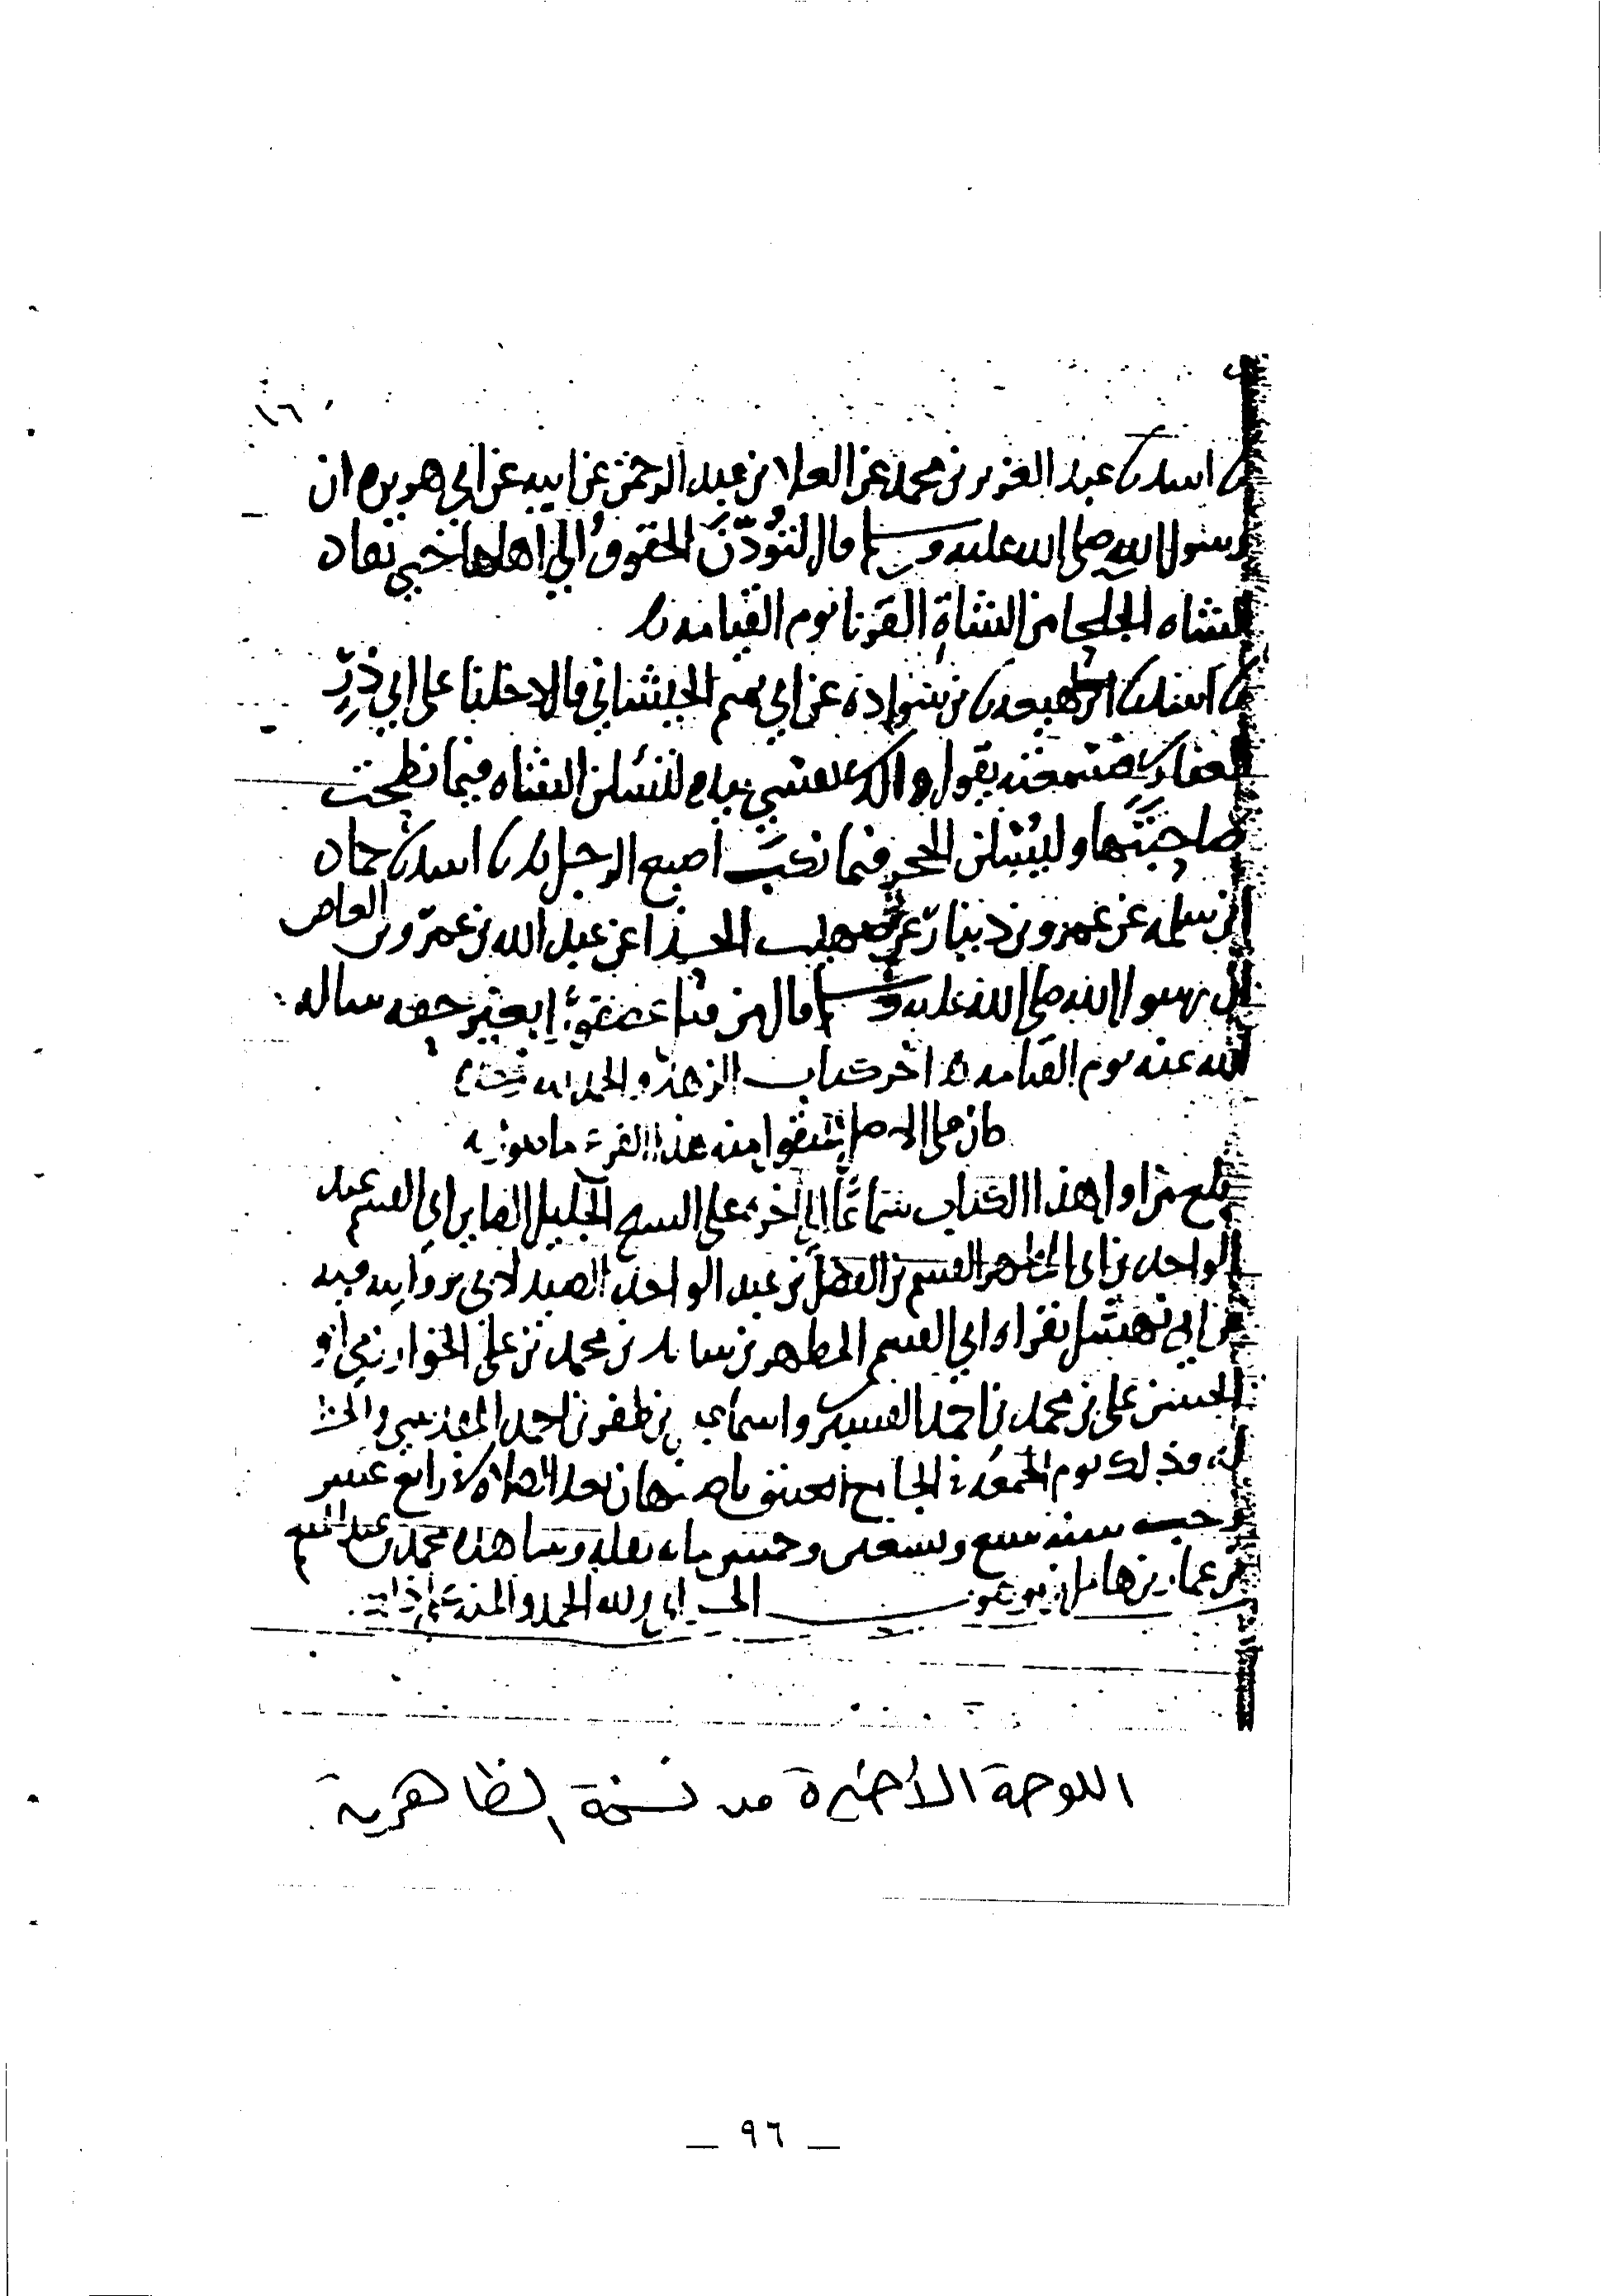 ١٦
اسد نا عبد العزيز بن محمد عن العلا بن عبد الرحمن عن ابيه عن ابي هريرة ان
رسول الله صلى الله عليه وسلم قال لتؤدّن الحقوق الى اهلها حتى تقاد
الشاه الجلحا من الشاة القرنا يوم القيامة
نا اسد نا ابن لهيعة نا بن سوادة عن ابي تميم الجيشاني قال دخلنا على ابي ذرّ
الغفاري فسمعته يقول والذي نفسي بيده لتسئلن الشاه فيما نطحت
صاحبتها وليسئلن الحجر فيما نكب اصبع الرجل نا اسد نا حماد
ابن سلمه عن عمرو بن دينار عن صهيب الحذا عن عبد الله بن عمرو بن العاص
ان رسول الله صلى الله عليه وسلم قال من قتل عصفورا بغير حقه ساله
الله عنه يوم القيامة اخر كتاب الزهد والحمد لله
كان على الاصل
بلغ من اول هذا الكتاب سماعا الى اخره على الشيخ الجليل ابي القسم عبد
الواحد بن ابي المطهر القسم بن الفضل بن عبد الواحد الصيدلاني بروايته فيه
عن ابي نهشل بقراءة ابي القسم المطهر بن محمد بن علي الخوارزمي ابو
الحسن علي بن محمد بن احمد واسماعيل بن ظفر بن احمد المقدسي والخط
له وذلك يوم الجمعة في الجامع العتيق باصبهان بعد الصلاة رابع عشر
رجب سنة سبع وتسعين وخمس مايه نقله وشاهده محمد بن عبد المنعم
بن عمار بن هامل الحراني ولله الحمد والمنة
اللوحة الأخيرة من نسخة الظاهرية
_ ٩٦ _